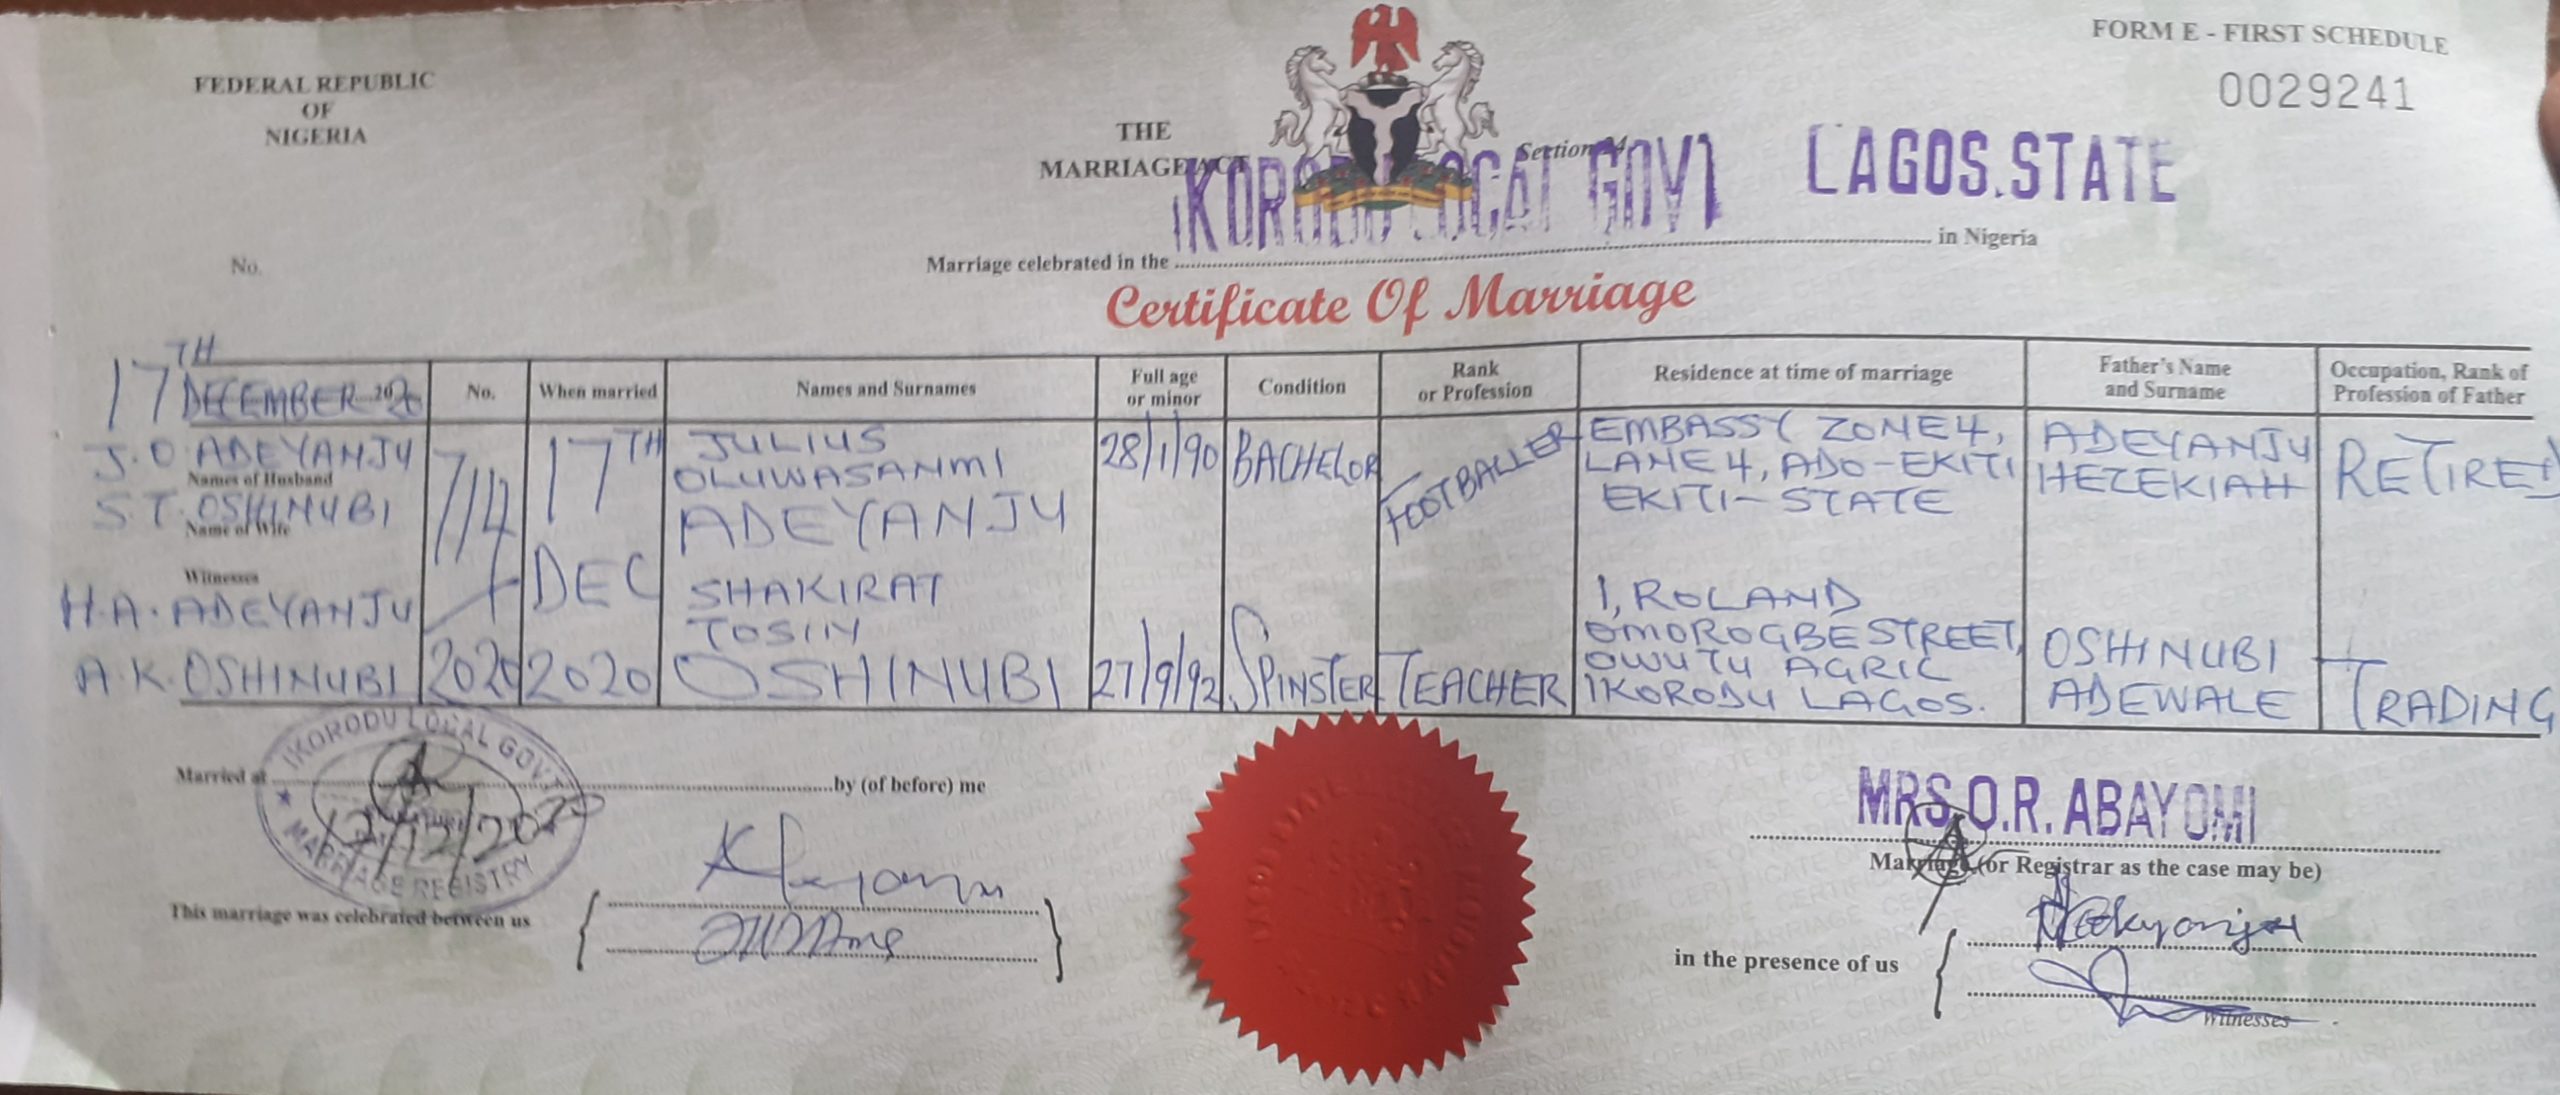 FORM E - FIRST SCHEDULE
0029241
FEDERAL REPUBLIC
OF
NIGERIA
THE
MARRIAGE ACT
Section
IKORODU LOCAL GOVT LAGOS.STATE
No.
Marriage celebrated in the in Nigeria
Certificate Of Marriage
17TH
DECEMBER 2020
No.
When married
Names and Surnames
Full age
or minor
Condition
Rank
or Profession
Residence at time of marriage
Father's Name
and Surname
Occupation, Rank of
Profession of Father
J.O ADEYANJU
Names of Husband
S.T. OSHINUBI
Name of Wife
Witnesses
H.A. ADEYANJU
A.K. OSHINUBI
714
2020
17TH
DEC
2020
JULIUS
OLUWASANMI
ADEYANJU
28/1/90
BACHELOR
FOOTBALLER
EMBASSY ZONE 4,
LANE 4, ADO-EKITI
EKITI-STATE
ADEYANJU
HEZEKIAH
RETIRED
SHAKIRAT
TOSIN
OSHINUBI
27/9/92
SPINSTER
TEACHER
1, ROLAND
OMOROGBE STREET,
OWUTU AGRIC
IKORODU LAGOS.
OSHINUBI
ADEWALE
TRADING
IKORODU LOCAL GOVT
MARRIAGE REGISTRY
Married at by (of before) me
MRS.O.R. ABAYOMI
Marriage (or Registrar as the case may be)
This marriage was celebrated between us
in the presence of us
Witnesses